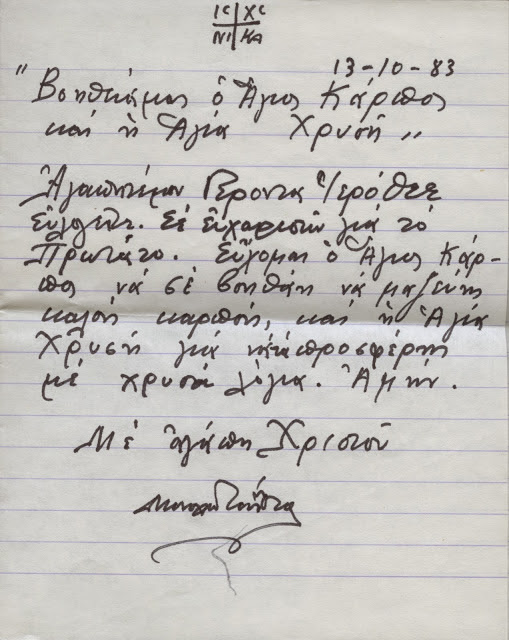 IC XC
ΝΙ ΚΑ
13-10-83
"Βοηθειάμας ὁ Ἅγιος Κάρπος
καί ἡ Ἁγία Χρυσῆ"
Ἀγαπητέμου Γέροντα Ἱερόθεε
Εὐλογεῖτε. Σέ εὐχαριστῶ γιά τό
Πρωτᾶτο. Εὔχομαι ὁ Ἅγιος Κάρ-
πος νά σέ βοηθάη νά μαζεύης
καλούς καρπούς, καί ἡ Ἁγία
Χρυσῆ γιά νά προσφέρης
μέ χρυσά λόγια. Ἀμήν.
Μέ ἀγάπη Χριστοῦ